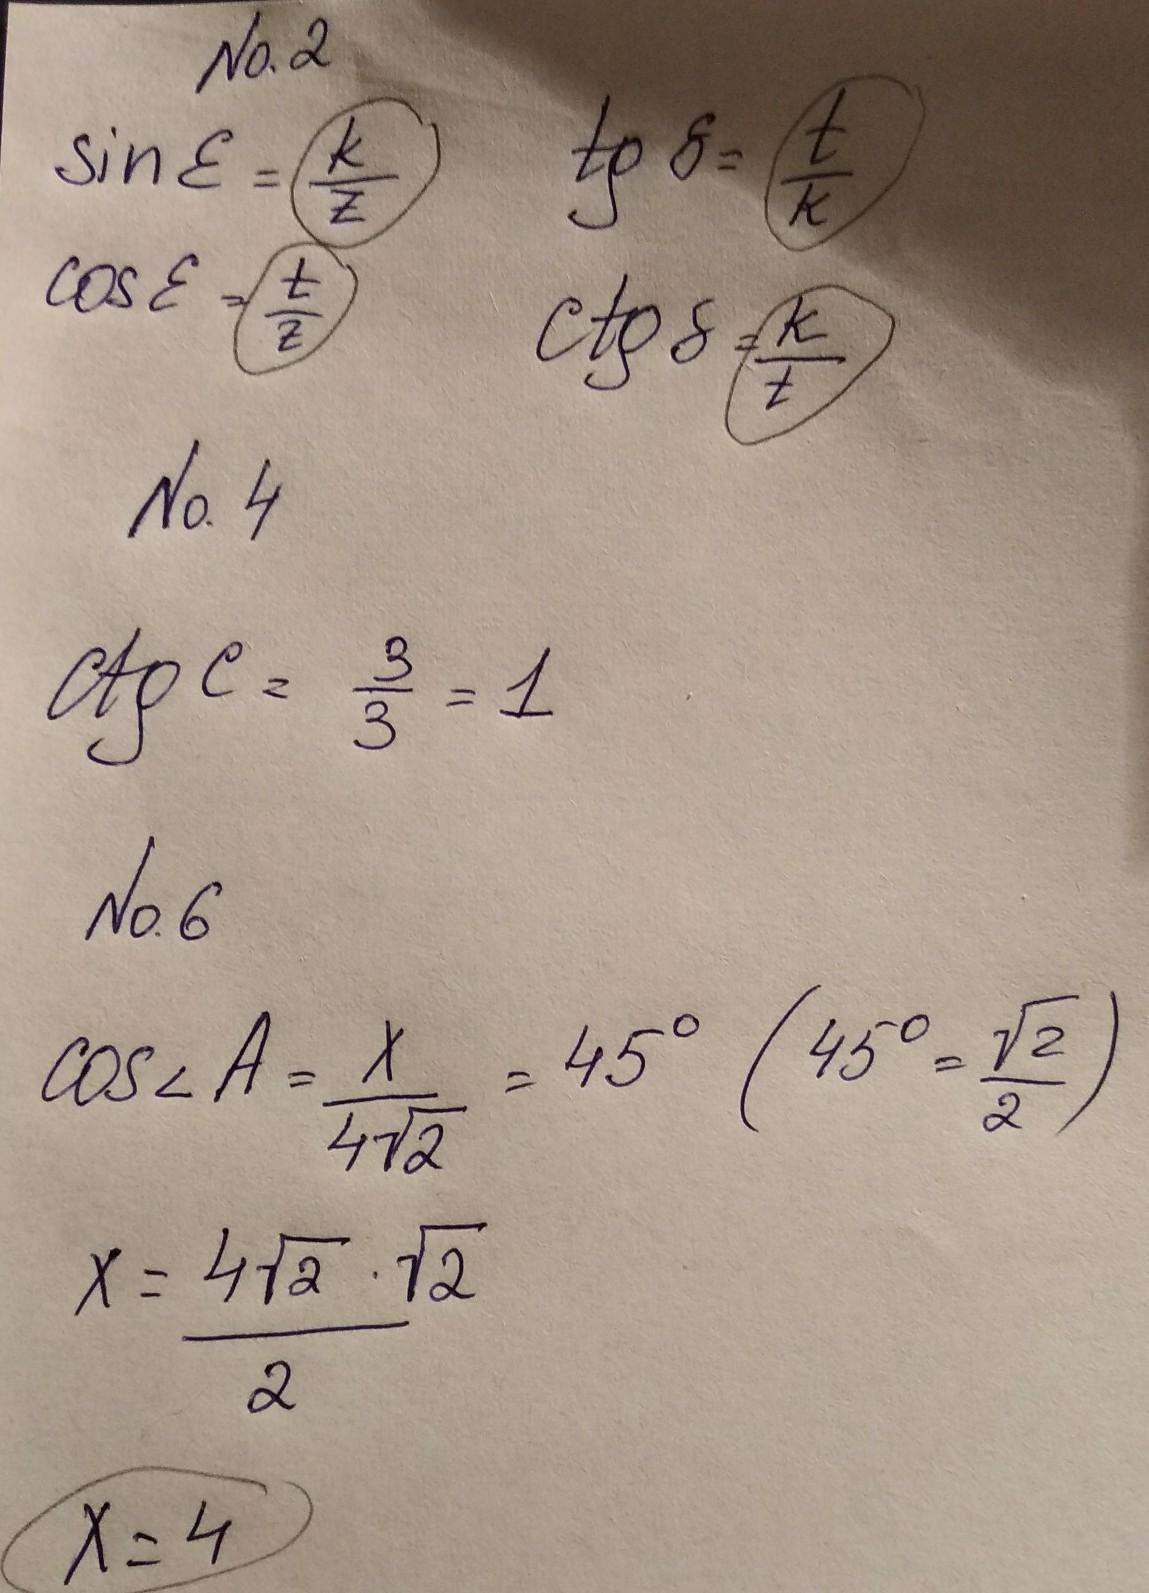 No. 2
sin ε = k/z
tg δ = t/k
cos ε = t/z
ctg δ = k/t
No. 4
ctg C = 3/3 = 1
No. 6
cos∠A = x/4√2 = 45° (45° = √2/2)
x = 4√2 · √2/2
x = 4